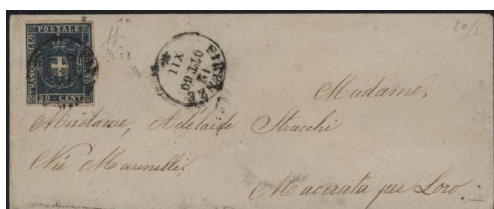 20/2
FRANCOBOLLO
POSTALE
20 CENT
FIRENZE
12
OTT 60
XII
Madame,
Madame, Adelaide Stracchi
Née Marinelli,
Macerata per Loro.